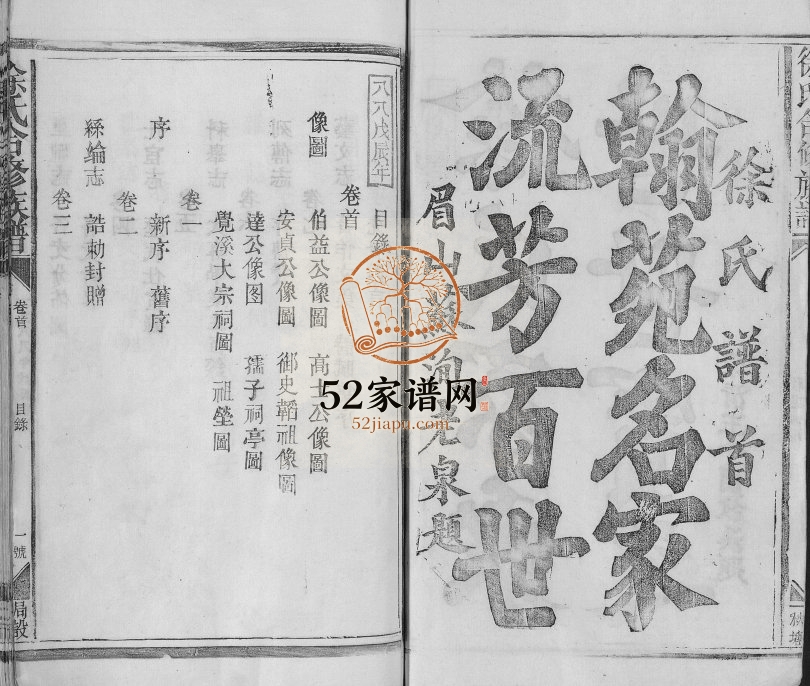 徐氏譜首
翰苑名家
流芳百世
眉山蘇洵老泉題
八八戊辰年
目錄
卷首
像圖 伯益公像圖 高士公像圖
安貞公像圖 御史韜祖像圖
達公像图 孺子祠亭圖
覺溪大宗祠圖 祖塋圖
卷一
序 新序 舊序
卷二
絲綸志 誥勅封贈
卷三
徐氏合修族譜 卷首 目錄 一號 局設
52家谱网
52jiapu.com